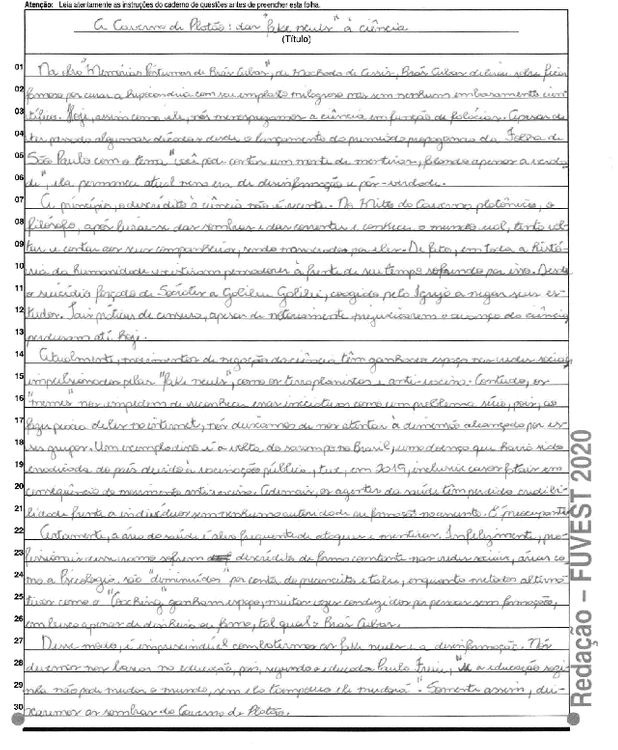 Atenção: Leia atentamente as instruções do caderno de questões antes de preencher esta folha.
A Caverna de Platão: das "fake news" à ciência
(Título)
01 Na obra "Memórias Póstumas de Brás Cubas", de Machado de Assis, Brás Cubas delirou sobre ficar
02 famoso por curar a hipocondria com seu emplasto milagroso mas sem nenhum embasamento cien-
03 tífico. Hoje, assim como ele, nós menosprezamos a ciência em função de falácias. Apesar de
04 ter passado algumas décadas desde o lançamento da premiada propaganda da Folha de
05 São Paulo com o tema "você pode contar um monte de mentiras, falando apenas a verda-
06 de", ela permanece atual nessa era de desinformação e pós-verdade.
07 A princípio, o descrédito à ciência não é recente. No Mito da Caverna platônico, o
08 filósofo, após livrar-se das sombras e das correntes e conhecer o mundo real, tenta vol-
09 tar e contar aos seus companheiros, sendo por eles. De fato, em toda a histó-
10 ria da humanidade existiram pensadores à frente de seu tempo sofrendo por isso. Desde
11 o suicídio forçado de Sócrates a Galileu Galilei, coagido pela Igreja a negar seus es-
12 tudos. Tais práticas de censura, apesar de notoriamente prejudicarem o avanço da ciência
13 perduram até hoje.
14 Atualmente, movimentos de negação da ciência têm ganhado espaço nas redes sociais,
15 impulsionados pelas "fake news", como os terraplanistas e anti-vacina. Contudo, os
16 "memes" nos impedem de reconhecer essas iniciativas como um problema sério, pois, ao
17 fazer piada deles na internet, nós deixamos de nos atentar à dimensão alcançada por es-
18 ses grupos. Um exemplo disso é a volta do sarampo no Brasil, uma doença que havia sido
19 erradicada do país devido à vacinação pública, teve, em 2019, inclusive casos fatais em
20 consequência do movimento anti-vacina. Ademais, os agentes da saúde têm perdido credibi-
21 lidade frente a indivíduos sem nenhuma autoridade ou no assunto. É preocupante
22 Certamente, a área da saúde é alvo frequente de ataques e mentiras. Infelizmente, pro-
23 fissionais sofrem descrédito de forma constante nas redes sociais, áreas co-
24 mo a Psicologia, são "diminuídas" por conta de preconceito e tabu, enquanto métodos alterna-
25 tivos como o "Coaching" ganham espaço, muitas vezes conduzidos por pessoas sem formação,
26 em busca apenas de dinheiro ou fama, tal qual o Brás Cubas.
27 Desse modo, é imprescindível combatermos as fake news e a desinformação. Nós
28 devemos nos basear na educação, pois, segundo o educador Paulo Freire, "se a educação sozi-
29 nha não pode mudar o mundo, sem ela tampouco ele mudará". Somente assim, dei-
30 xaremos as sombras da Caverna de Platão.
Redação – FUVEST 2020